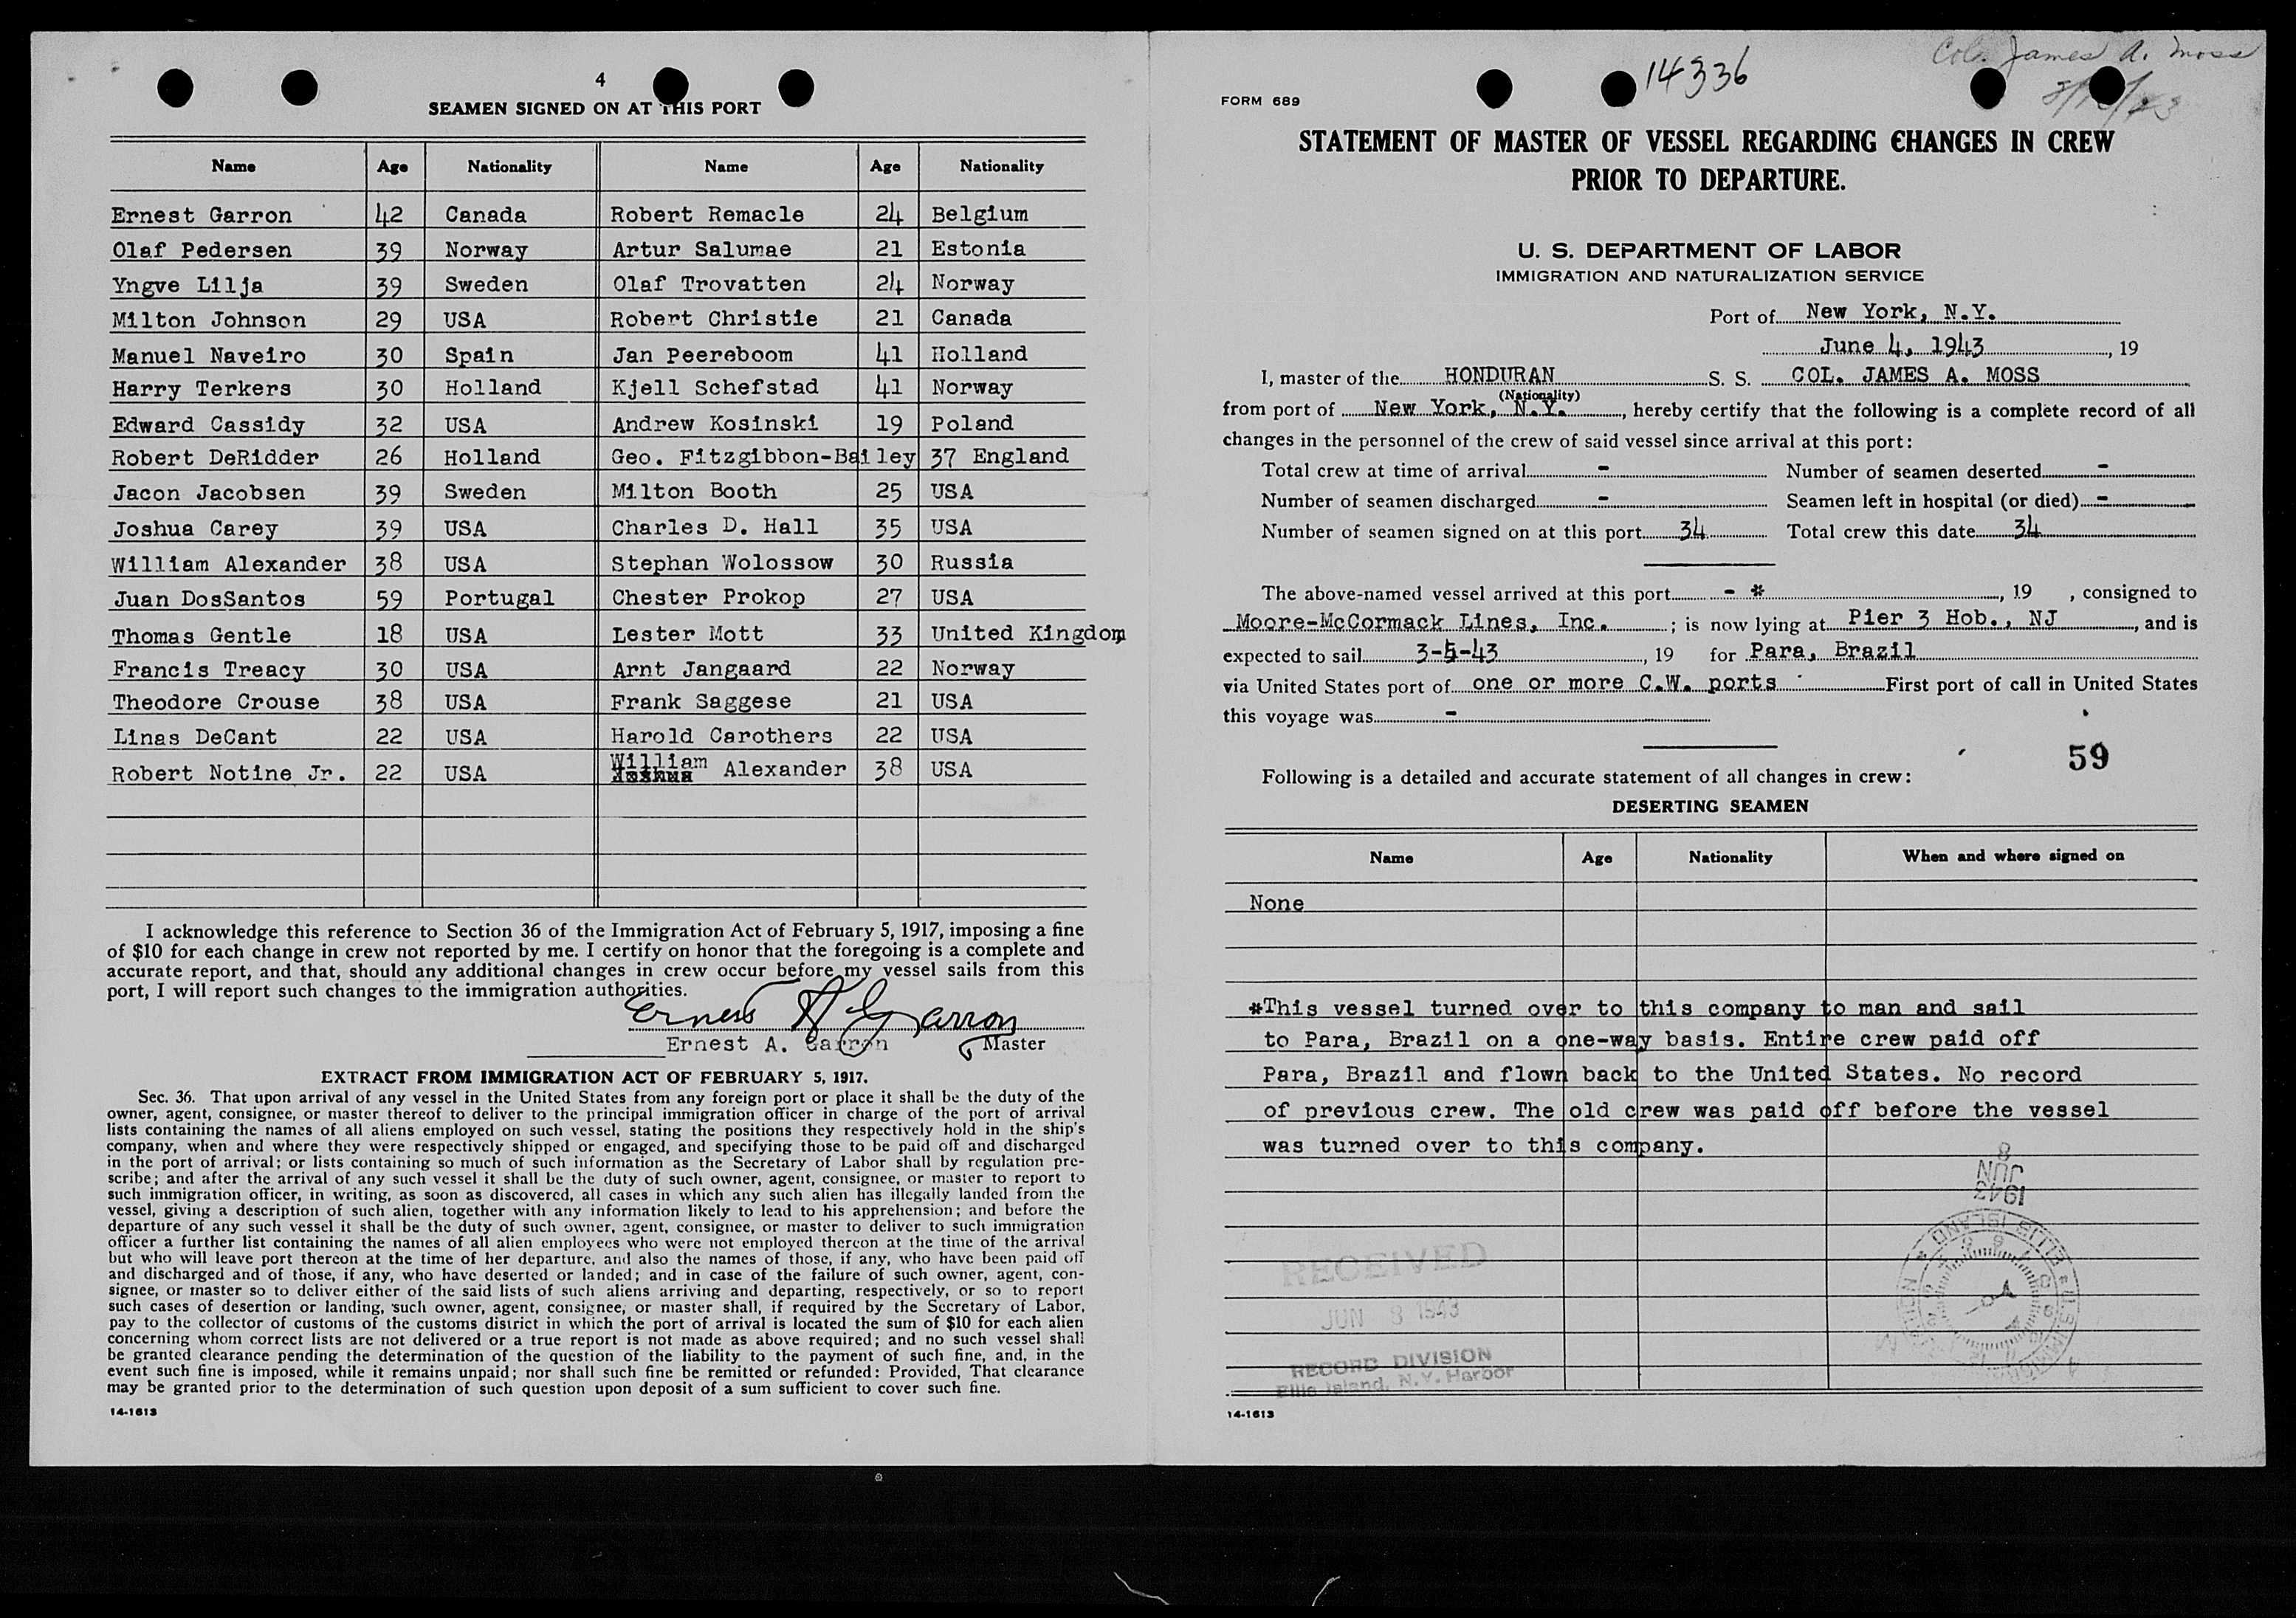 4
SEAMEN SIGNED ON AT THIS PORT
Name Age Nationality Name Age Nationality
Ernest Garron 42 Canada Robert Remacle 24 Belgium
Olaf Pedersen 39 Norway Artur Salumae 21 Estonia
Yngve Lilja 39 Sweden Olaf Trovatten 24 Norway
Milton Johnson 29 USA Robert Christie 21 Canada
Manuel Naveiro 30 Spain Jan Peereboom 41 Holland
Harry Terkers 30 Holland Kjell Schefstad 41 Norway
Edward Cassidy 32 USA Andrew Kosinski 19 Poland
Robert DeRidder 26 Holland Geo. Fitzgibbon-Bailey 37 England
Jacon Jacobsen 39 Sweden Milton Booth 25 USA
Joshua Carey 39 USA Charles D. Hall 35 USA
William Alexander 38 USA Stephan Wolossow 30 Russia
Juan DosSantos 59 Portugal Chester Prokop 27 USA
Thomas Gentle 18 USA Lester Mott 33 United Kingdom
Francis Treacy 30 USA Arnt Jangaard 22 Norway
Theodore Crouse 38 USA Frank Saggese 21 USA
Linas DeCant 22 USA Harold Carothers 22 USA
Robert Notine Jr. 22 USA William Joshua Alexander 38 USA
I acknowledge this reference to Section 36 of the Immigration Act of February 5, 1917, imposing a fine
of $10 for each change in crew not reported by me. I certify on honor that the foregoing is a complete and
accurate report, and that, should any additional changes in crew occur before my vessel sails from this
port, I will report such changes to the immigration authorities.
Ernest A Garron
Ernest A. Garron Master
EXTRACT FROM IMMIGRATION ACT OF FEBRUARY 5, 1917.
Sec. 36. That upon arrival of any vessel in the United States from any foreign port or place it shall be the duty of the
owner, agent, consignee, or master thereof to deliver to the principal immigration officer in charge of the port of arrival
lists containing the names of all aliens employed on such vessel, stating the positions they respectively hold in the ship's
company, when and where they were respectively shipped or engaged, and specifying those to be paid off and discharged
in the port of arrival; or lists containing so much of such information as the Secretary of Labor shall by regulation pre-
scribe; and after the arrival of any such vessel it shall be the duty of such owner, agent, consignee, or master to report to
such immigration officer, in writing, as soon as discovered, all cases in which any such alien has illegally landed from the
vessel, giving a description of such alien, together with any information likely to lead to his apprehension; and before the
departure of any such vessel it shall be the duty of such owner, agent, consignee, or master to deliver to such immigration
officer a further list containing the names of all alien employees who were not employed thereon at the time of the arrival
but who will leave port thereon at the time of her departure, and also the names of those, if any, who have been paid off
and discharged and of those, if any, who have deserted or landed; and in case of the failure of such owner, agent, con-
signee, or master so to deliver either of the said lists of such aliens arriving and departing, respectively, or so to report
such cases of desertion or landing, such owner, agent, consignee, or master shall, if required by the Secretary of Labor,
pay to the collector of customs of the customs district in which the port of arrival is located the sum of $10 for each alien
concerning whom correct lists are not delivered or a true report is not made as above required; and no such vessel shall
be granted clearance pending the determination of the question of the liability to the payment of such fine, and, in the
event such fine is imposed, while it remains unpaid; nor shall such fine be remitted or refunded: Provided, That clearance
may be granted prior to the determination of such question upon deposit of a sum sufficient to cover such fine.
14-1613
Col. James A. Moss
14336
FORM 689
STATEMENT OF MASTER OF VESSEL REGARDING CHANGES IN CREW
PRIOR TO DEPARTURE.
U. S. DEPARTMENT OF LABOR
IMMIGRATION AND NATURALIZATION SERVICE
Port of New York, N.Y.
June 4, 1943, 19
I, master of the HONDURAN S. S. COL. JAMES A. MOSS
(Nationality)
from port of New York, N.Y., hereby certify that the following is a complete record of all
changes in the personnel of the crew of said vessel since arrival at this port:
Total crew at time of arrival - Number of seamen deserted -
Number of seamen discharged - Seamen left in hospital (or died) -
Number of seamen signed on at this port 34 Total crew this date 34
The above-named vessel arrived at this port - *, 19 , consigned to
Moore-McCormack Lines, Inc. ; is now lying at Pier 3 Hob., NJ, and is
expected to sail 3-5-43, 19 for Para, Brazil
via United States port of one or more C.W. ports First port of call in United States
this voyage was -
59
Following is a detailed and accurate statement of all changes in crew:
DESERTING SEAMEN
Name Age Nationality When and where signed on
None
*This vessel turned over to this company to man and sail
to Para, Brazil on a one-way basis. Entire crew paid off
Para, Brazil and flown back to the United States. No record
of previous crew. The old crew was paid off before the vessel
was turned over to this company.
8
JUN
1943
RECEIVED
JUN 8 1943
RECORD DIVISION
Ellis Island, N.Y. Harbor
14-1613